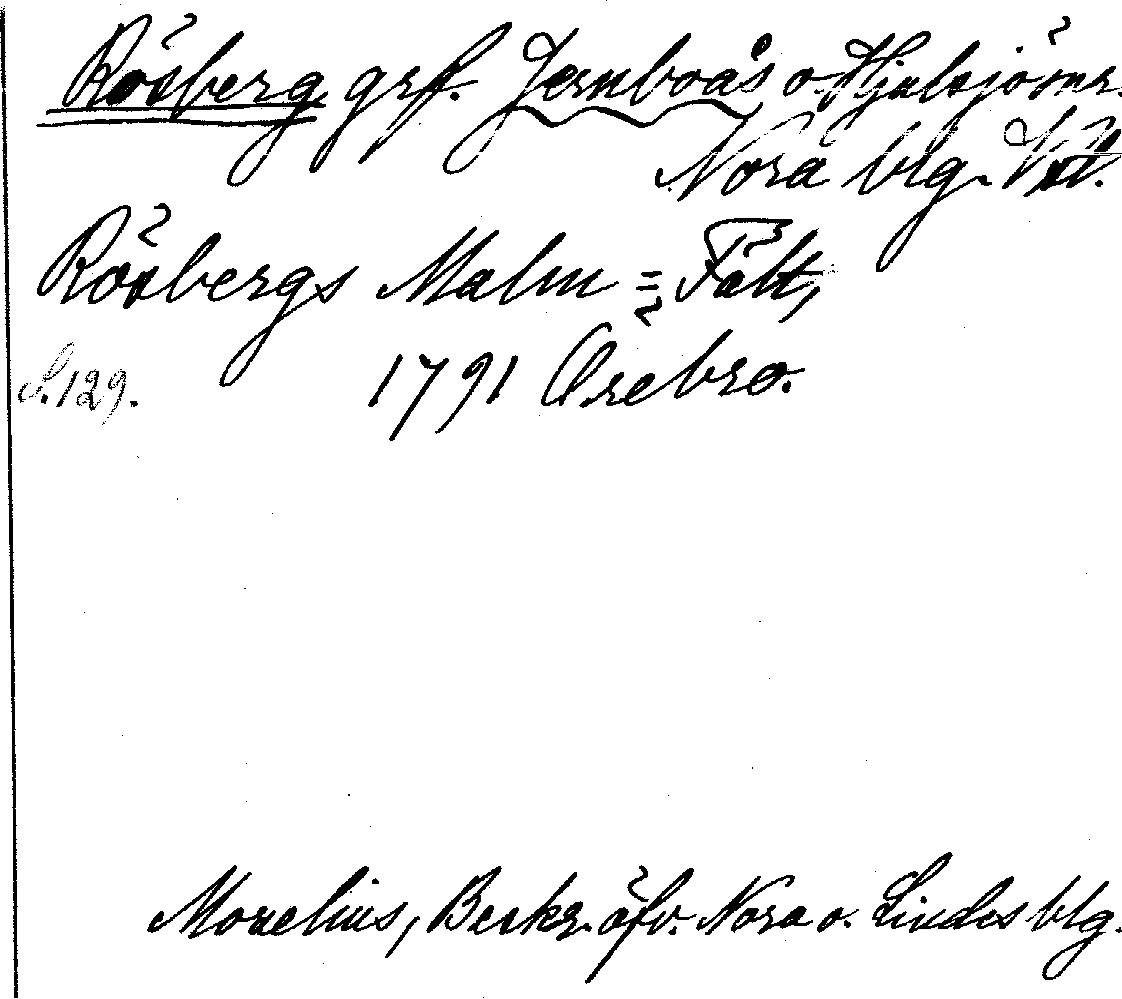 Rösberg grf. Jernboås o. Hjulsjö mr.
Nora blg. Vstl.
Rösbergs Malm = Fält,
S. 129. 1791 Örebro.
Morelius, Beskr. öfv. Nora o. Lindes blg.